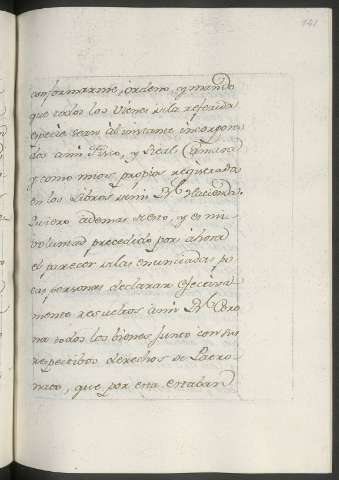 141
conformarme, ordeno, y mando
que todos los Vienes de la referida
especie sean al instante incorpora-
dos a mi Fisco, y Real Camara
y como mios propios registrados
en los Libros de mi Rl. Hacienda.
Quiero ademas de esto, y es mi
voluntad precedido por ahora
el parecer de las enunciadas po-
cas personas declarar efectiva-
mente resueltos a mi Rl. Coro-
na todos los bienes junto con sus
respectibos derechos de Patro-
nato, que por esta estaban